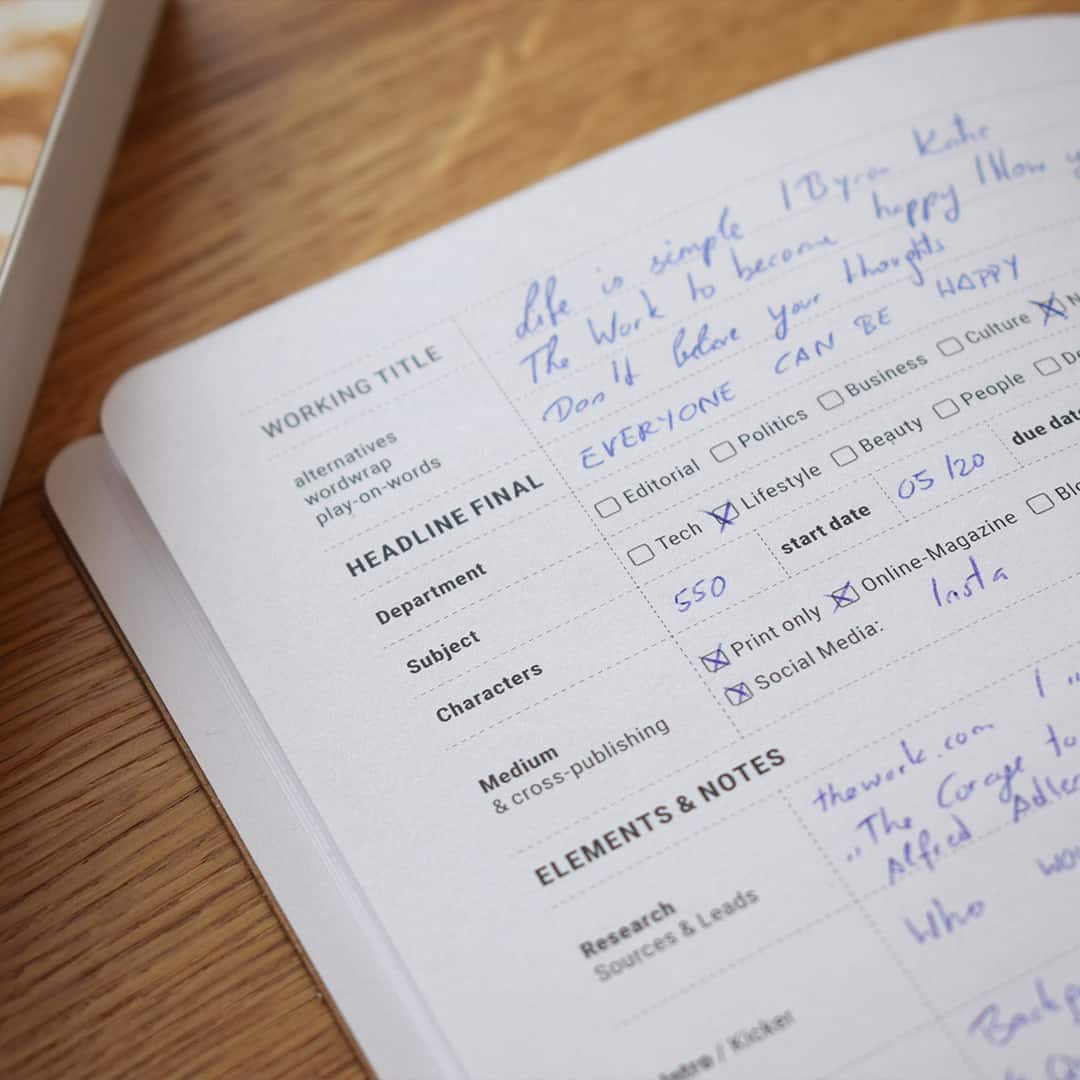 life is simple | Byron Katie
WORKING TITLE The Work to become happy | How
alternatives Don't believe your thoughts
wordwrap
play-on-words
HEADLINE FINAL EVERYONE CAN BE HAPPY
Department ☐ Editorial ☐ Politics ☐ Business ☐ Culture ☒
Subject ☐ Tech ☒ Lifestyle ☐ Beauty ☐ People ☐
Characters 550 start date 05/20 due date
Medium ☒ Print only ☒ Online-Magazine ☐
& cross-publishing ☒ Social Media: Insta
ELEMENTS & NOTES
Research thework.com |
Sources & Leads „The Corage to
Alfred Adler
Who
Intro / Kicker